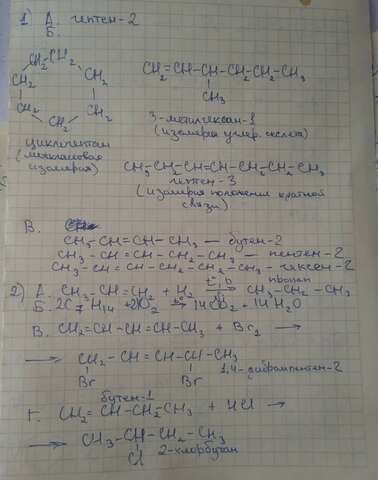 1) А. гептен-2
Б.
CH₂ CH₂
CH₂ CH₂
CH₂ CH₂
CH₂
циклогептан
(межклассовая
изомерия)
CH₂=CH-CH-CH₂-CH₂-CH₃
CH₃
3-метилгексан-1
(изомерия углер. скелета)
CH₃-CH₂-CH=CH-CH₂-CH₂-CH₃
гептен-3
(изомерия положения кратной
связи)
В.
CH₃-CH=CH-CH₃ — бутен-2
CH₃-CH=CH-CH₂-CH₃ — пентен-2
CH₃-CH=CH-CH₂-CH₂-CH₃ — гексен-2
2) А. CH₃-CH=CH₂ + H₂ → CH₃-CH₂-CH₃
пропан
Б. 2C₇H₁₄ + 21O₂ → 14CO₂ + 14H₂O
В. CH₂=CH-CH=CH-CH₃ + Br₂ →
→ CH₂-CH=CH-CH-CH₃
Br Br 1,4-дибромпентен-2
бутен-1
Г. CH₂=CH-CH₂-CH₃ + HCl →
→ CH₃-CH-CH₂-CH₃
Cl 2-хлорбутан